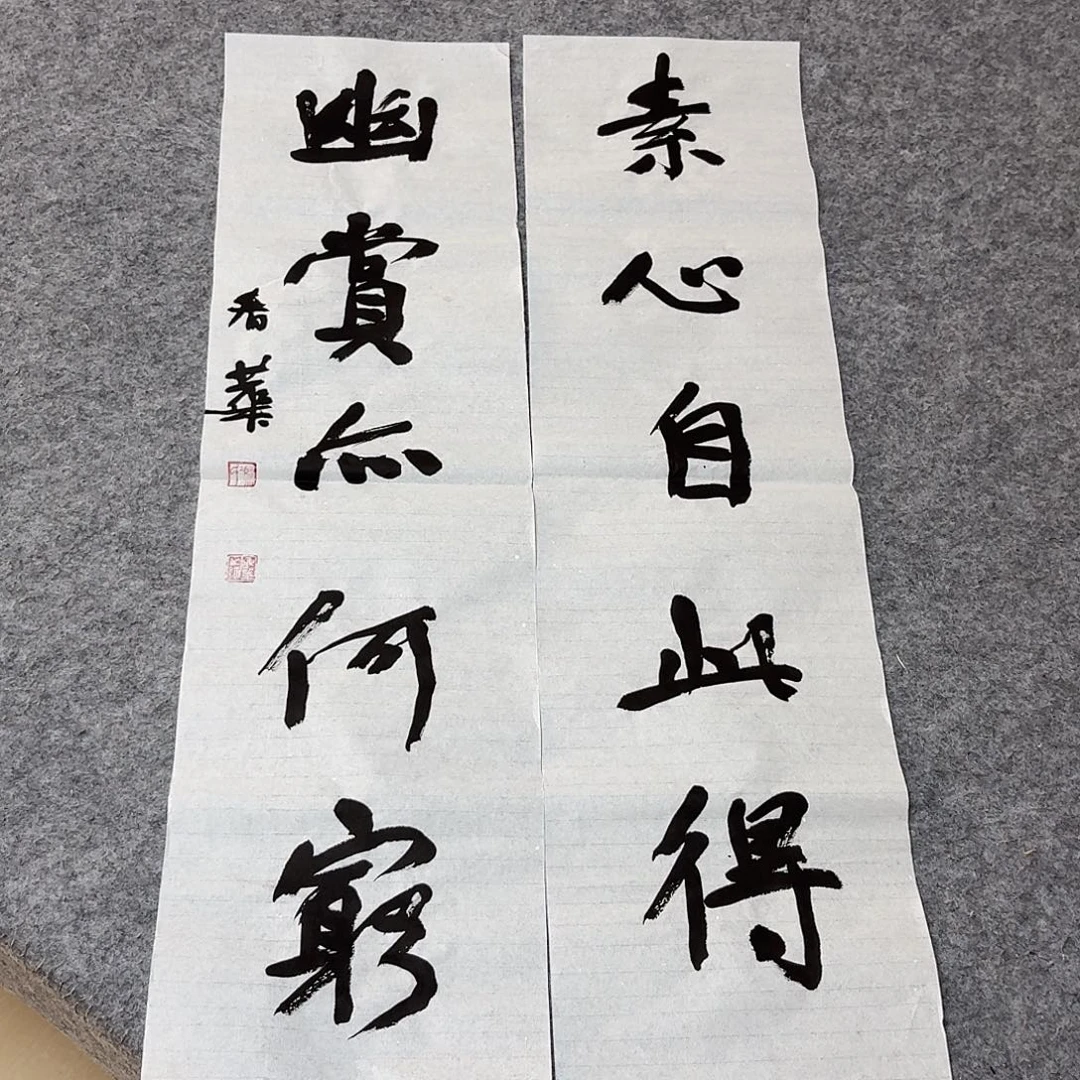 素心自此得
幽賞亦何窮
香葉